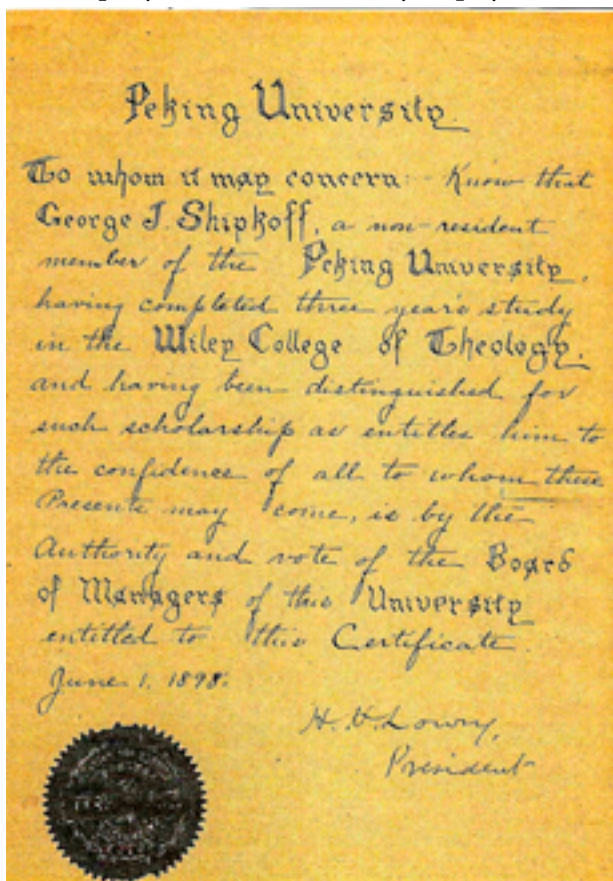 Peking University.
To whom it may concern: Know that
George J. Shipkoff, a non-resident
member of the Peking University,
having completed three year's study
in the Wiley College of Theology,
and having been distinguished for
such scholarship as entitles him to
the confidence of all to whom these
Presents may come, is by the
Authority and vote of the Board
of Managers of this University
entitled to this Certificate.
June 1, 1898.
H. H. Lowry,
President